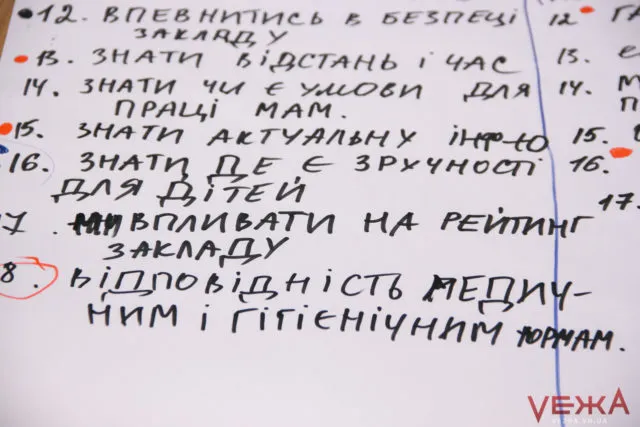 12. ВПЕВНИТИСЬ В БЕЗПЕЦІ
ЗАКЛАДУ
13. ЗНАТИ ВІДСТАНЬ І ЧАС
14. ЗНАТИ ЧИ Є УМОВИ ДЛЯ
ПРАЦІ МАМ.
15. ЗНАТИ АКТУАЛЬНУ ІНФ-Ю
16. ЗНАТИ ДЕ Є ЗРУЧНОСТІ
ДЛЯ ДІТЕЙ
7. ВПЛИВАТИ НА РЕЙТИНГ
ЗАКЛАДУ
8. ВІДПОВІДНІСТЬ МЕДИЧ-
НИМ І ГІГІЄНІЧНИМ НОРМАМ.
12
13.
14.
15.
16.
17.
VЕЖА
VEZHA.VN.UA